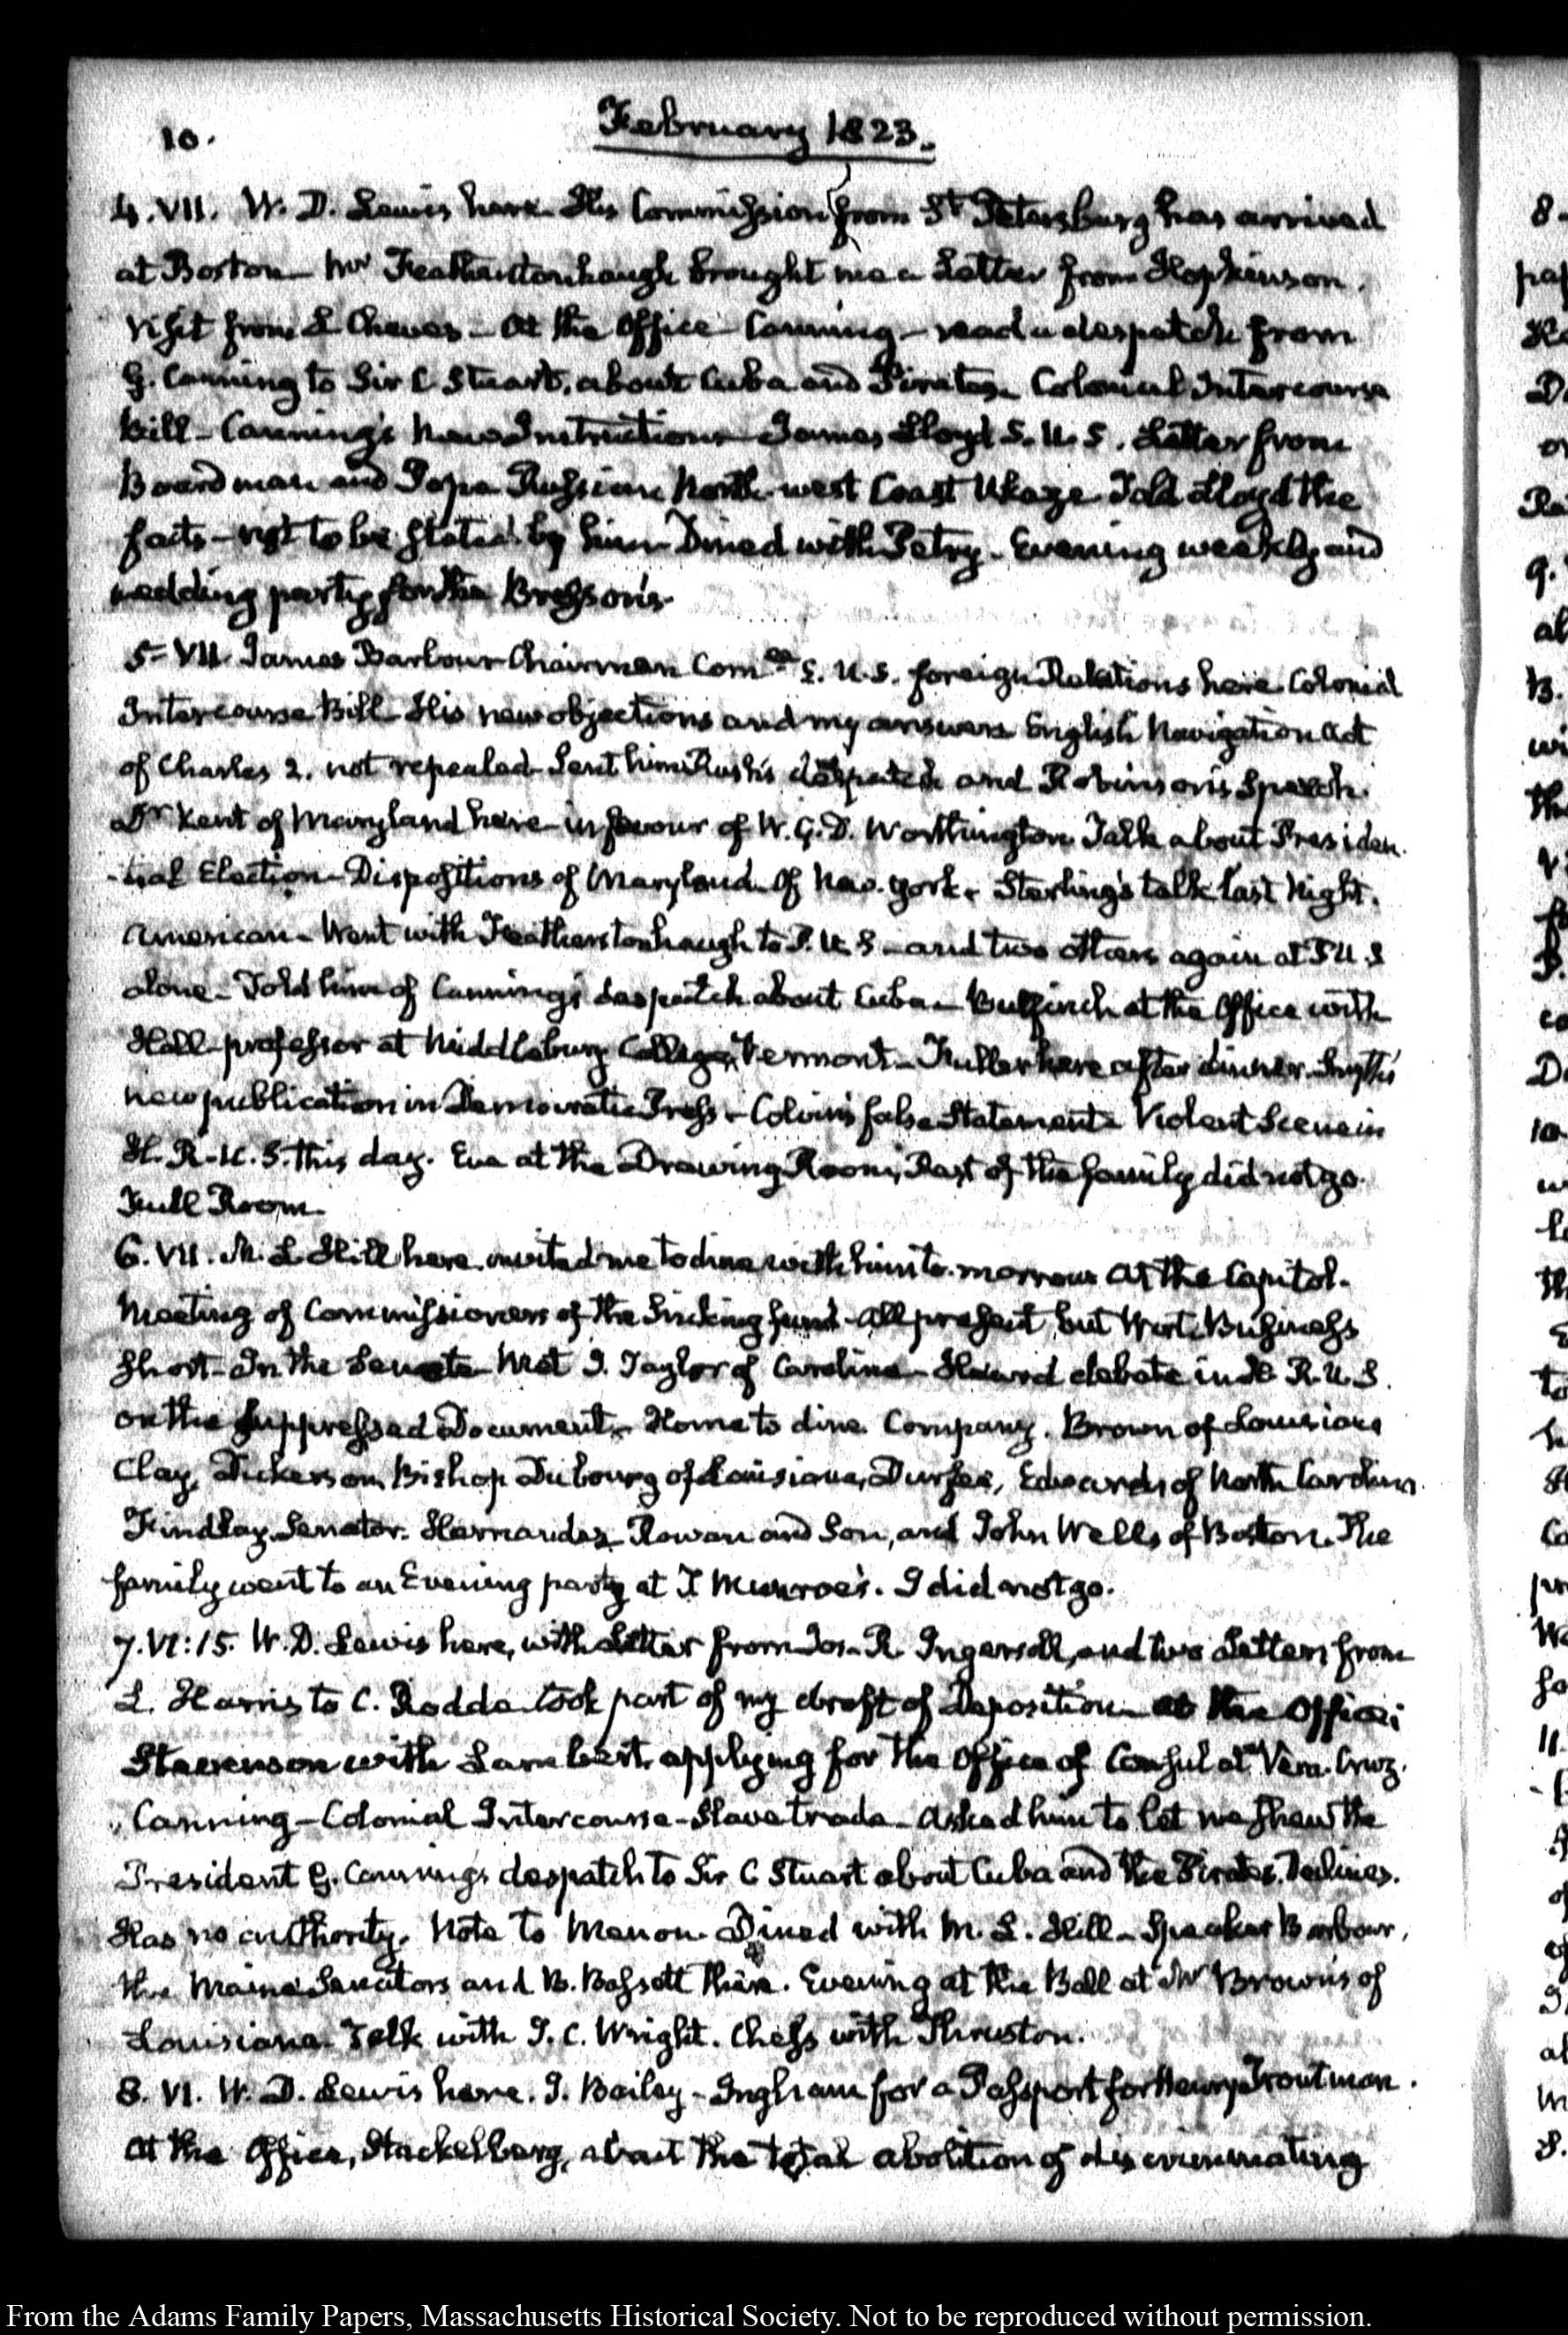 10.
February 1823.
4. VII. W. D. Lewis here. His Commission from St Petersburg has arrived
at Boston— Mr Featherstonhaugh brought me a Letter from Hopkinson.
Visit from L Cheves— At the Office Canning— read a despatch from
G. Canning to Sir C Stuart, about Cuba and Pirates. Colonial Intercourse
Bill— Canning's New Instructions James Lloyd S. U. S. Letter from
Boardman and Pope Russian North-west Coast Ukaze Told Lloyd the
facts— not to be stated by him— Dined with Petry. Evening weekly and
wedding party for the Bresson's.
5. VII. James Barbour Chairman Comee S. U. S. foreign Relations here. Colonial
Intercourse Bill His new objections and my answers English Navigation Act
of Charles 2. not repealed— Sent him Rush's despatch and Robinson's Speech.
Dr Kent of Maryland here— in favour of W. G. D. Worthington Talk about Presiden-
-tial Election— Dispositions of Maryland— Of New-York. Sterling's talk last Night.
American— Went with Featherstonhaugh to P. U. S— and two others again at P U S
alone— Told him of Canning's despatch about Cuba— Bulfinch at the Office with
Hall professor at Middlebury College, Vermont— Fuller here after dinner.
new publication in Democratic Press— Colvin's false Statements Violent Scene in
H. R. U. S. this day. Eve at the Drawing Room; Rest of the family did not go.
Full Room.
6. VII. M. L Hill here. invited me to dine with him to-morrow at the Capitol.
Meeting of Commissioners of the Sinking fund— All present but Wirt. Business
short— In the Senate— Met J. Taylor of Carolina— Heard debate in H R. U. S.
on the suppressed Document— Home to dine Company. Brown of Louisiana
Clay, Dickerson, Bishop Dubourg of Louisiana, Durfee, Edwards of North Carolina
Findlay, Senator. Hernandez— Rowan and Son, and John Wells of Boston. The
family went to an Evening party at T Munroe's. I did not go.
7. VI:15. W. D. Lewis here, with Letter from Jos. R Ingersoll, and two Letters from
L. Harris to C. Rodde took part of my draft of Deposition— at the Office;
Stevenson with Lambert applying for the Office of Consul at Vera-Cruz.
Canning— Colonial Intercourse— Slave trade— Asked him to let me shew the
President G. Canning's despatch to Sir C Stuart about Cuba and the Pirates. Declines.
Has no authority. Note to Menou. Dined with M. L. Hill— Speaker Barbour,
the Maine Senators and B. Bassett there. Evening at the Ball at Mr Brown's of
Louisiana. Talk with J. C. Wright. Chess with Thruston.
8. VI. W. D. Lewis here. J. Bailey— Ingham for a Passport for Henry Troutman.
At the Office, Stackelberg, about the total abolition of discriminating
From the Adams Family Papers, Massachusetts Historical Society. Not to be reproduced without permission.